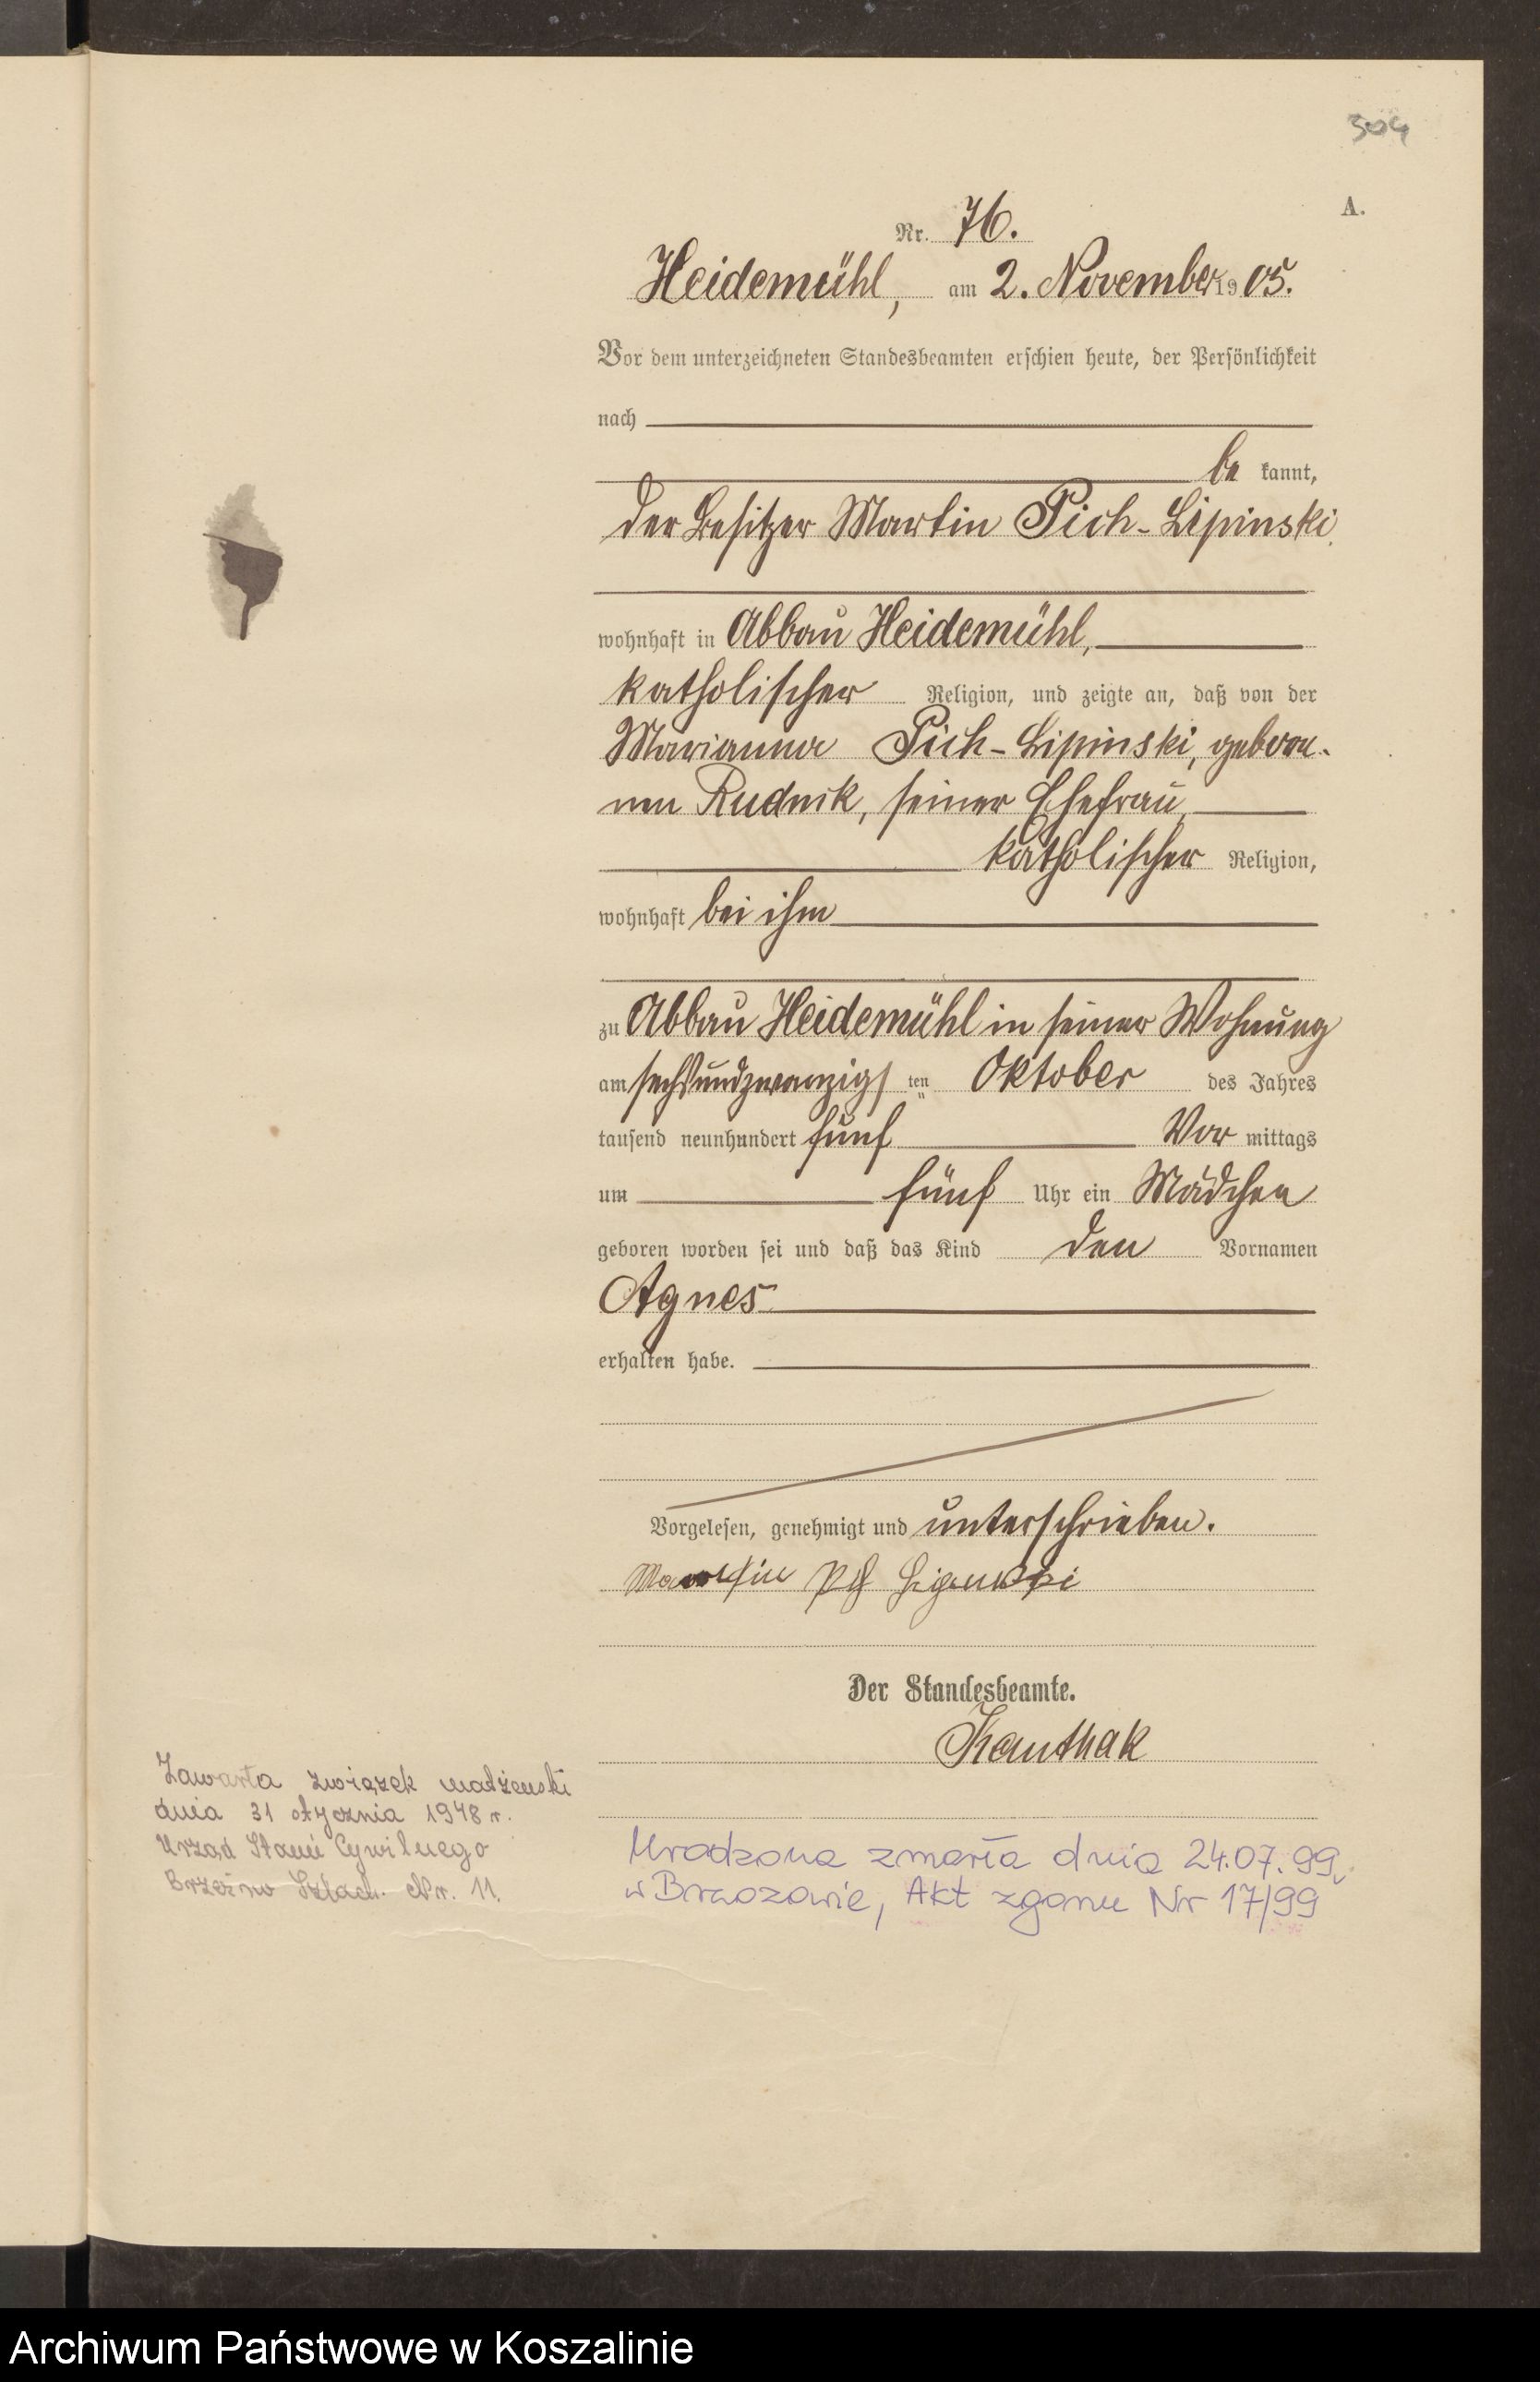 304
A.
Nr. 76.
Heidemühl, am 2. November 1905.
Vor dem unterzeichneten Standesbeamten erschien heute, der Persönlichkeit
nach
be kannt,
der Besitzer Martin Pich-Lipinski,
wohnhaft in Abbau Heidemühl,
katholischer Religion, und zeigte an, daß von der
Marianna Pich-Lipinski, gebore-
nen Rudnik, seiner Ehefrau,
katholischer Religion,
wohnhaft bei ihm
zu Abbau Heidemühl in seiner Wohnung
am sechsundzwanzigs ten Oktober des Jahres
tausend neunhundert fünf Vor mittags
um fünf Uhr ein Mädchen
geboren worden sei und daß das Kind den Vornamen
Agnes
erhalten habe.
Vorgelesen, genehmigt und unterschrieben.
Martin Lipinski
Der Standesbeamte.
Kauthak
Zawarła związek małżeński
dnia 31 stycznia 1948 r.
Urząd Stanu Cywilnego
Brzeźno Szlach. Nr. 11.
Urodzona zmarła dnia 24.07.99
w Brzozowie, Akt zgonu Nr 17/99
Archiwum Państwowe w Koszalinie